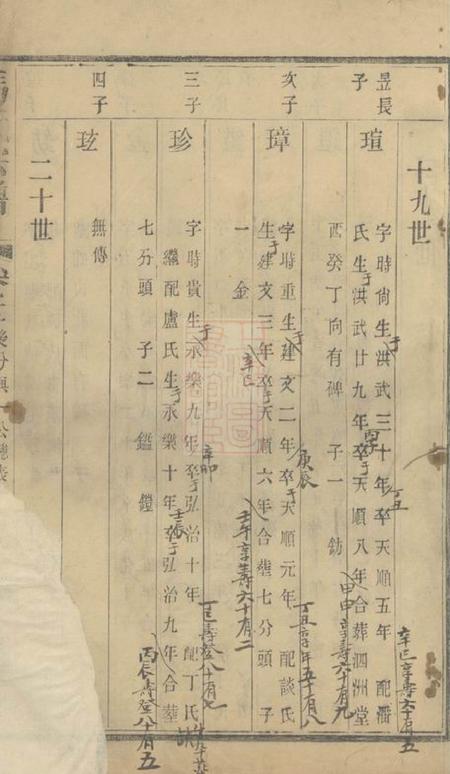 十九世
昱長子
瑄
字時尙生于洪武三十年丁丑卒天順五年辛巳享壽六十有五 配潘
氏生于洪武廿九年丙子卒于天順八年甲申享壽六十有九合葬泗洲堂
酉癸丁向有碑 子一 鈁
次子
璋
字時重生于建文二年庚辰卒于天順元年丁丑享年五十有八 配談氏
生于建文三年辛巳卒于天順六年壬午享壽六十有二合塟七分頭 子
一 金
三子
珍
字時貴生于永樂九年辛卯卒于弘治十年丁巳壽登八十有七 配丁氏
繼配盧氏生于永樂十年壬辰卒于弘治九年丙辰壽登八十有五合塟
七分頭 子二 鎰 鎧
四子
玹
無傳
二十世